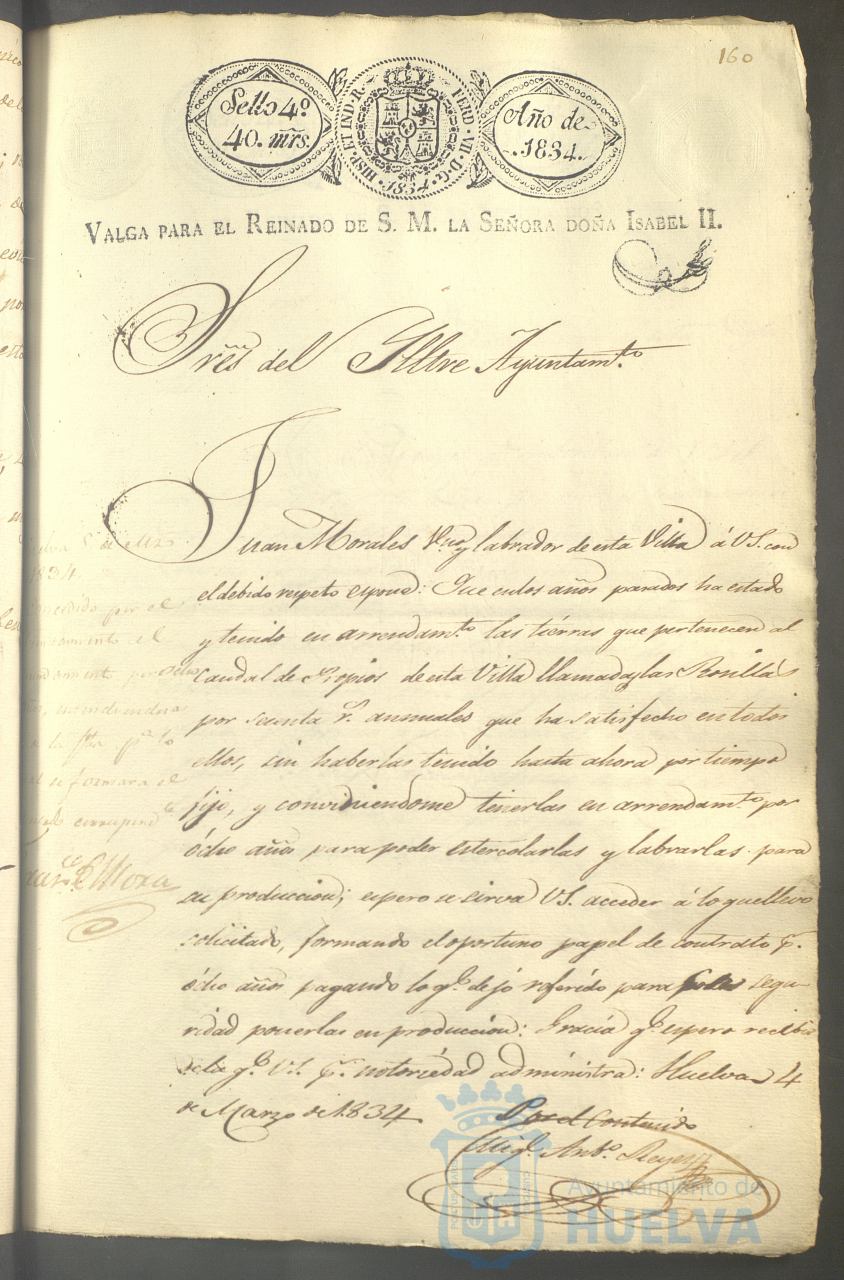 160
Sello 4º
40. mrs.
HISP. ET IND. R. FERD. VII. D. G. 1834.
Año de
1834.
VALGA PARA EL REINADO DE S. M. LA SEÑORA DOÑA ISABEL II.
Sres del Illtre Ayuntamto
Juan Morales Vno y labrador de esta Villa á VS. con
el debido respeto espone: Que en los años pasados ha estado
y tenido en arrendamto las tierras que pertenecen al
Caudal de Propios de esta Villa llamadas las
por sesenta rs. annuales que ha satisfecho en todos
ellos, sin haberlas tenido hasta ahora por tiempo
fijo, y convidiendome tenerlas en arrendamto por
ócho años para poder estercolarlas y labrarlas para
su produccion; espero se sirva VS. acceder á lo que llevo
solicitado, formando el oportuno papel de contrato pr.
ócho años pagando lo qe. dejo referido para segu
ridad ponerlas en producción: Gracia qe. espero recibir
de la qe. VS. pr. notoriedad administra: Huelva 4
de Marzo de 1834
Por el Contenido
Migl. Anto. Reyes
1834.
concedido por el
el
se formara el
Mora
Ayuntamiento de
HUELVA